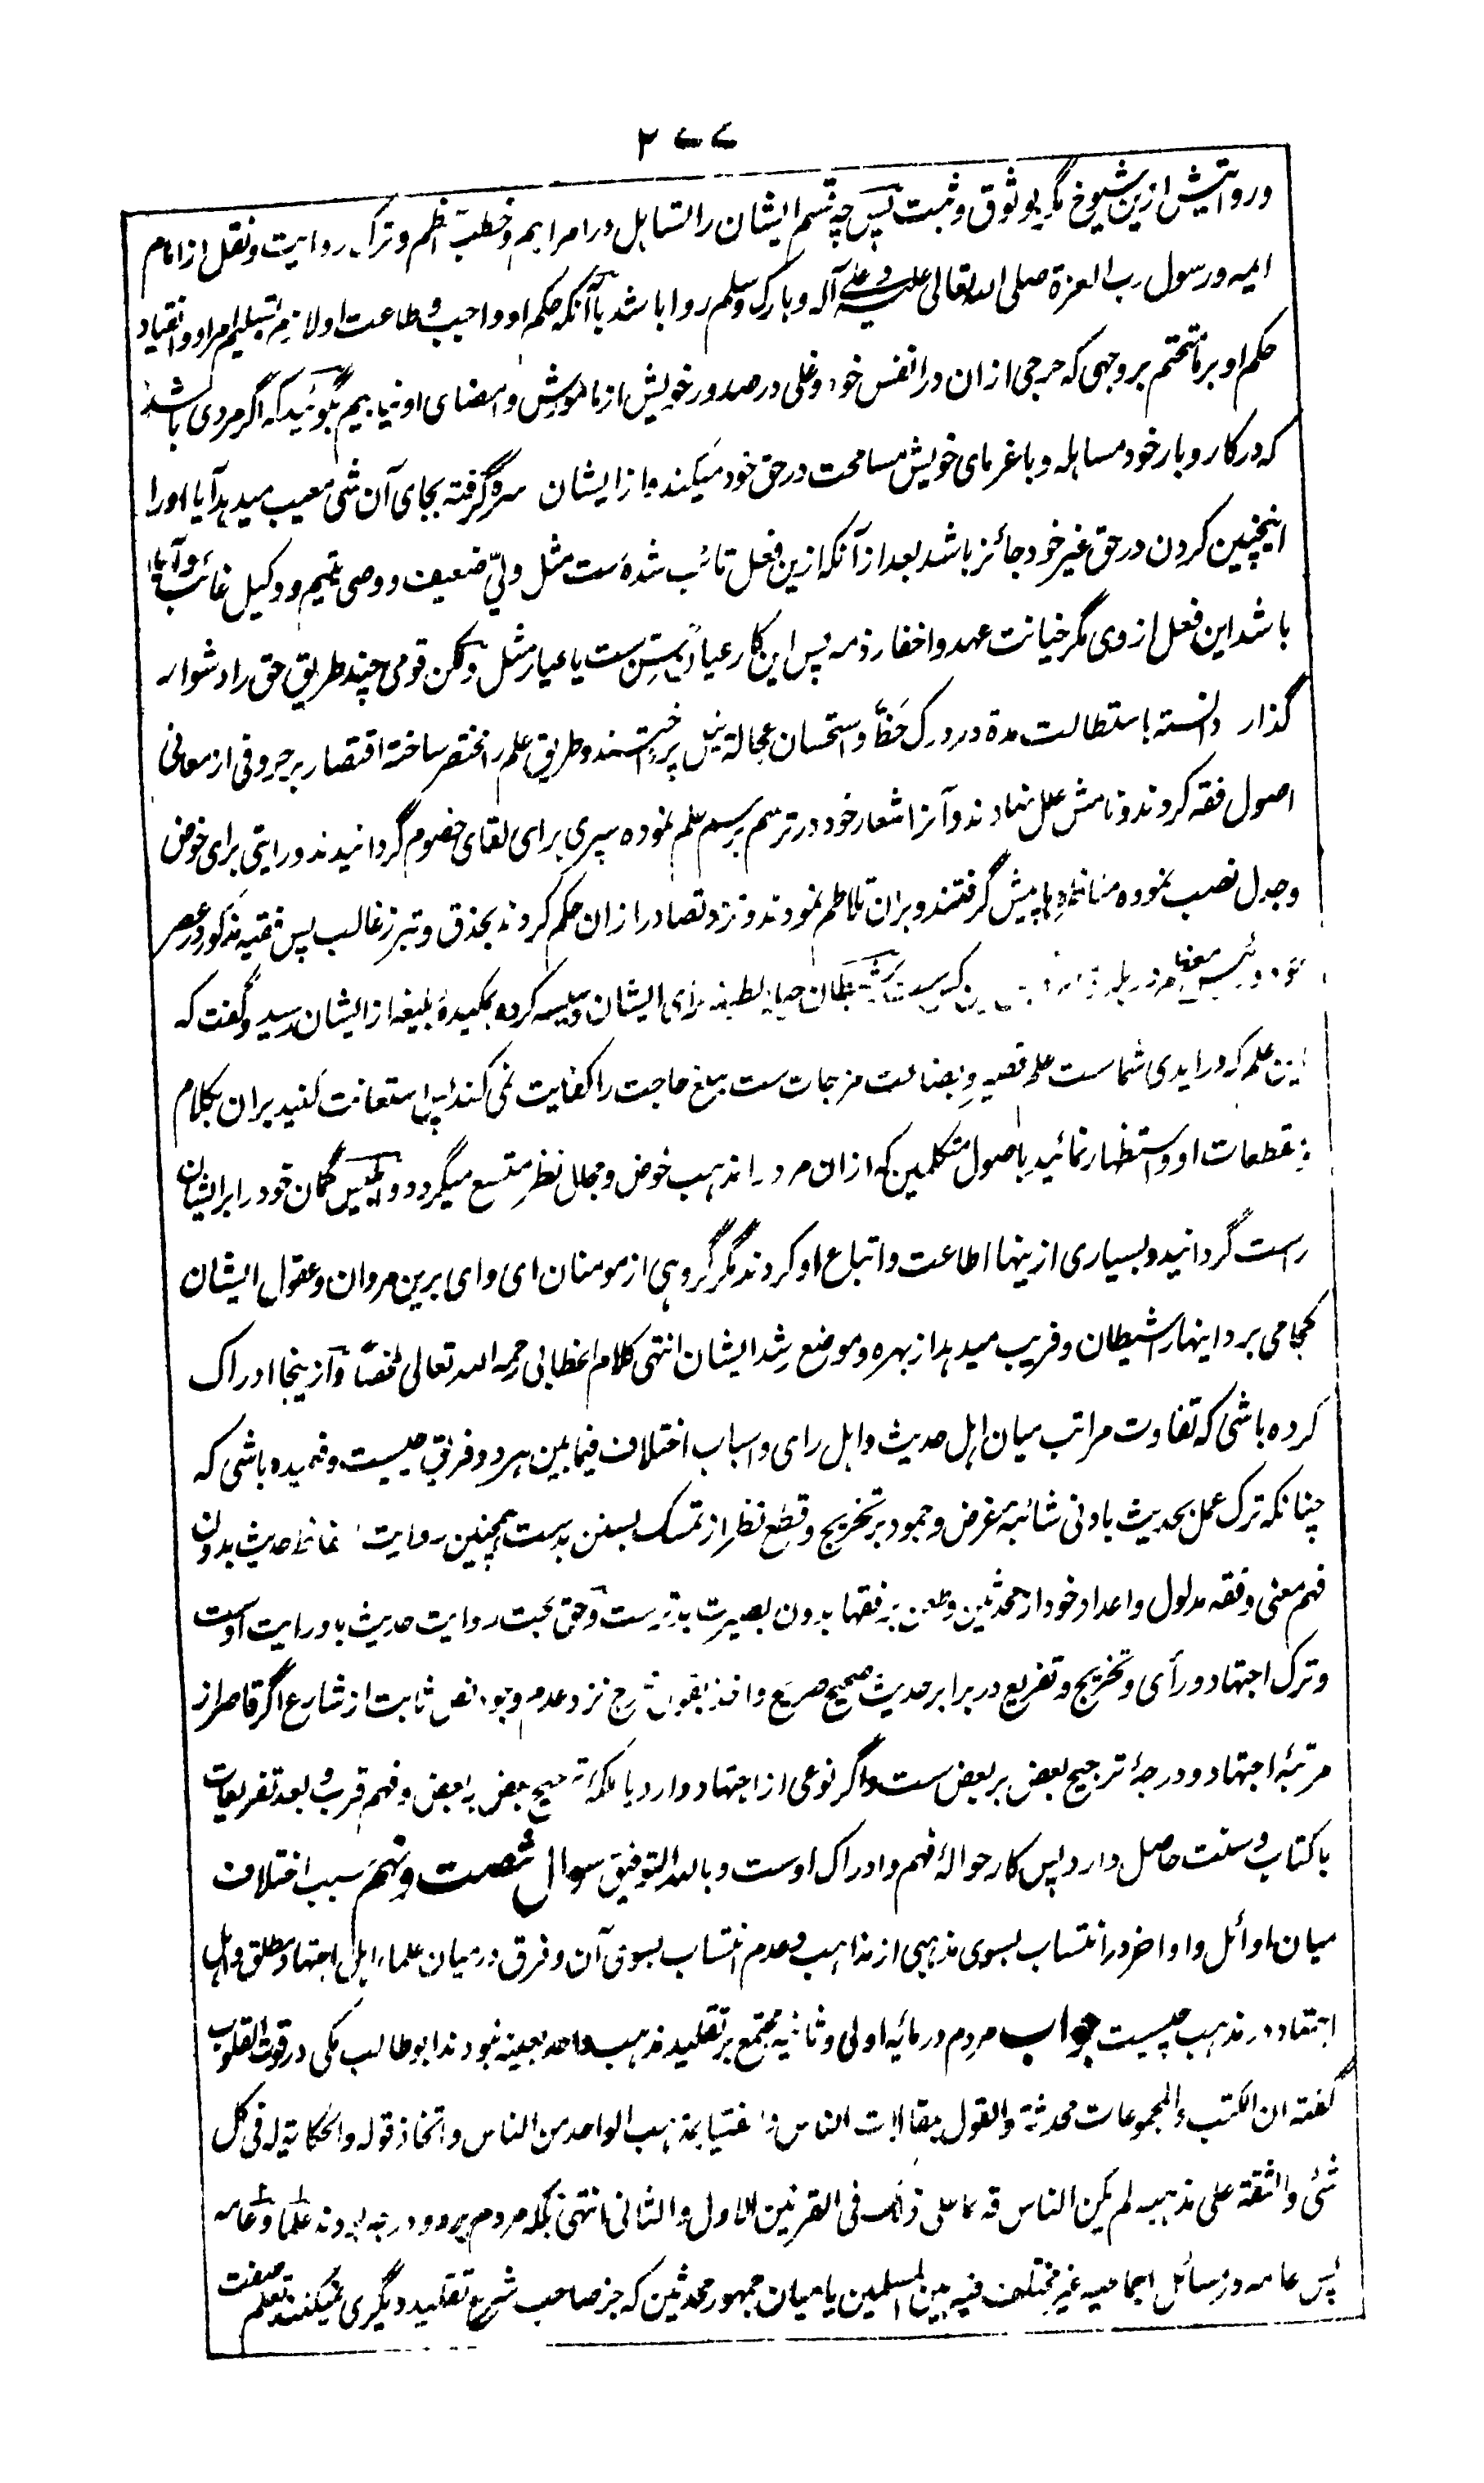 ۲۷۷
و روایتش ازین شیوخ مگر بوثوق و ثبت پس چه قسم ایشان را تساهل در امر اهم و خطب اعظم و ترک روایت و نقل از امام
ایمه و رسول رب العزة صلی الله تعالی علیه و علی آله و بارک و سلم روا باشد با آنکه حکم او واجب و طاعت او لازم تسلیم امر او و انقیاد
حکم او بر ما متحتم بر وجهی که حرجی ازان در انفس خود و غلی در صدور خویش از و امضای او نیابیم بگوئید که اگر مردی باشد
که در کاروبار خود مساهله و با غرمای خویش مسامحت در حق خود میکند و از ایشان سره گرفته بجای آن شی معیب میدهد آیا او را
اینچنین کردن در حق غیر خود جائز باشد بعد از آنکه ازین فعل تائب شده ست مثل ولی ضعیف و وصی یتیم و وکیل غائب و آیا
باشد این فعل از وی مگر خیانت عهد و اخفار ذمه پس این کار عیاذ ست یا عیار مثل ولکن قومی چند طریق حق را دشوار
گذار دانسته باستطالت مدة در درک حظ و استحسان عجالة نیل پرداختند و طریق علم را مختصر ساخته اقتصار بر حروفی از معانی
اصول فقه کردند و نامش علل نهادند و آنرا شعار خود در ترسم برسم علم نموده سپری برای لقای خصوم گردانیدند و رایتی برای خوض
و جدل نصب نموده مناظره ها پیش گرفتند و بران تلاطم نمودند و نزد تصادر ازان حکم کردند بحذق و تبرز غالب پس فقیه مذکور در عصر
خود و رئیس معظم در بلد شیطان حیله لطیفه برای ایشان دسیسه کرده بمکیدهٔ بلیغه از ایشان رسید و گفت که
این علم که در ایدی شماست علم قصیر و بضاعت مزجات ست مبلغ حاجت را کفایت نمی کند پس استعانت کنید بران بکلام
و مقطعات او و استظهار نمائید باصول متکلمین که ازان مرد را مذهب خوض و مجال نظر متسع میگردد و ابلیس گمان خود را بر ایشان
راست گردانید و بسیاری ازینها اطاعت و اتباع او کردند مگر گروهی از مومنان ای وای برین مردان و عقول ایشان
کجا می برد اینها را شیطان و فریب میدهد از بهره و موضع رشد ایشان انتهی کلام الخطابی رحمه الله تعالی ملخصاً و ازینجا ادراک
کرده باشی که تفاوت مراتب میان اهل حدیث و اهل رای و اسباب اختلاف فیما بین هر دو فریق چیست و فهمیده باشی که
چنانکه ترک عمل بحدیث بادنی شائبهٔ غرض و جمود بر تخریج و قطع نظر از تمسک بسنن بدست همچنین روایت الفاظ حدیث بدون
فهم معنی و فقه مدلول و اعداد خود از محدثین و طعن بر فقها بدون بصیرت بدترست و حق بحت روایت حدیث با درایت اوست
و ترک اجتهاد و رأی و تخریج و تفریع در برابر حدیث صحیح صریح و اخذ بقول نزد عدم وجود نص ثابت از شارع اگر قاصر از
مرتبهٔ اجتهاد و درجهٔ ترجیح بعض بر بعض ست و اگر نوعی از اجتهاد دارد یا ملکهٔ ترجیح بعض بر بعض و فهم قرب و بعد تفریعات
با کتاب و سنت حاصل دارد پس کار حوالهٔ فهم و ادراک اوست و بالله التوفیق سوال شصت و نهم سبب اختلاف
میان اوائل و اواخر در انتساب بسوی مذهبی از مذاهب و عدم انتساب بسوی آن و فرق در میان علماء اهل اجتهاد مطلق و اهل
اجتهاد در مذهب چیست جواب مردم در مائه اولی و ثانیه مجتمع بر تقلید مذهب واحد بعینه نبودند ابو طالب مکی در قوت القلوب
گفته ان الکتب و المجموعات محدثة و القول بمقالات الناس و الفتیا بمذهب الواحد من الناس و اتخاذ قوله و الحکایة له فی کل
شئ و الثقة علی مذهبه لم یکن الناس قدیما علی ذلک فی القرنین الاول و الثانی انتهی بلکه مردم بر دو درجه بودند علما و عامه
پس عامه در مسائل اجماعیه غیر مختلف فیه بین المسلمین یا میان جمهور محدثین که جز صاحب شرع تقلید دیگری نمیکنند تعلم صفت